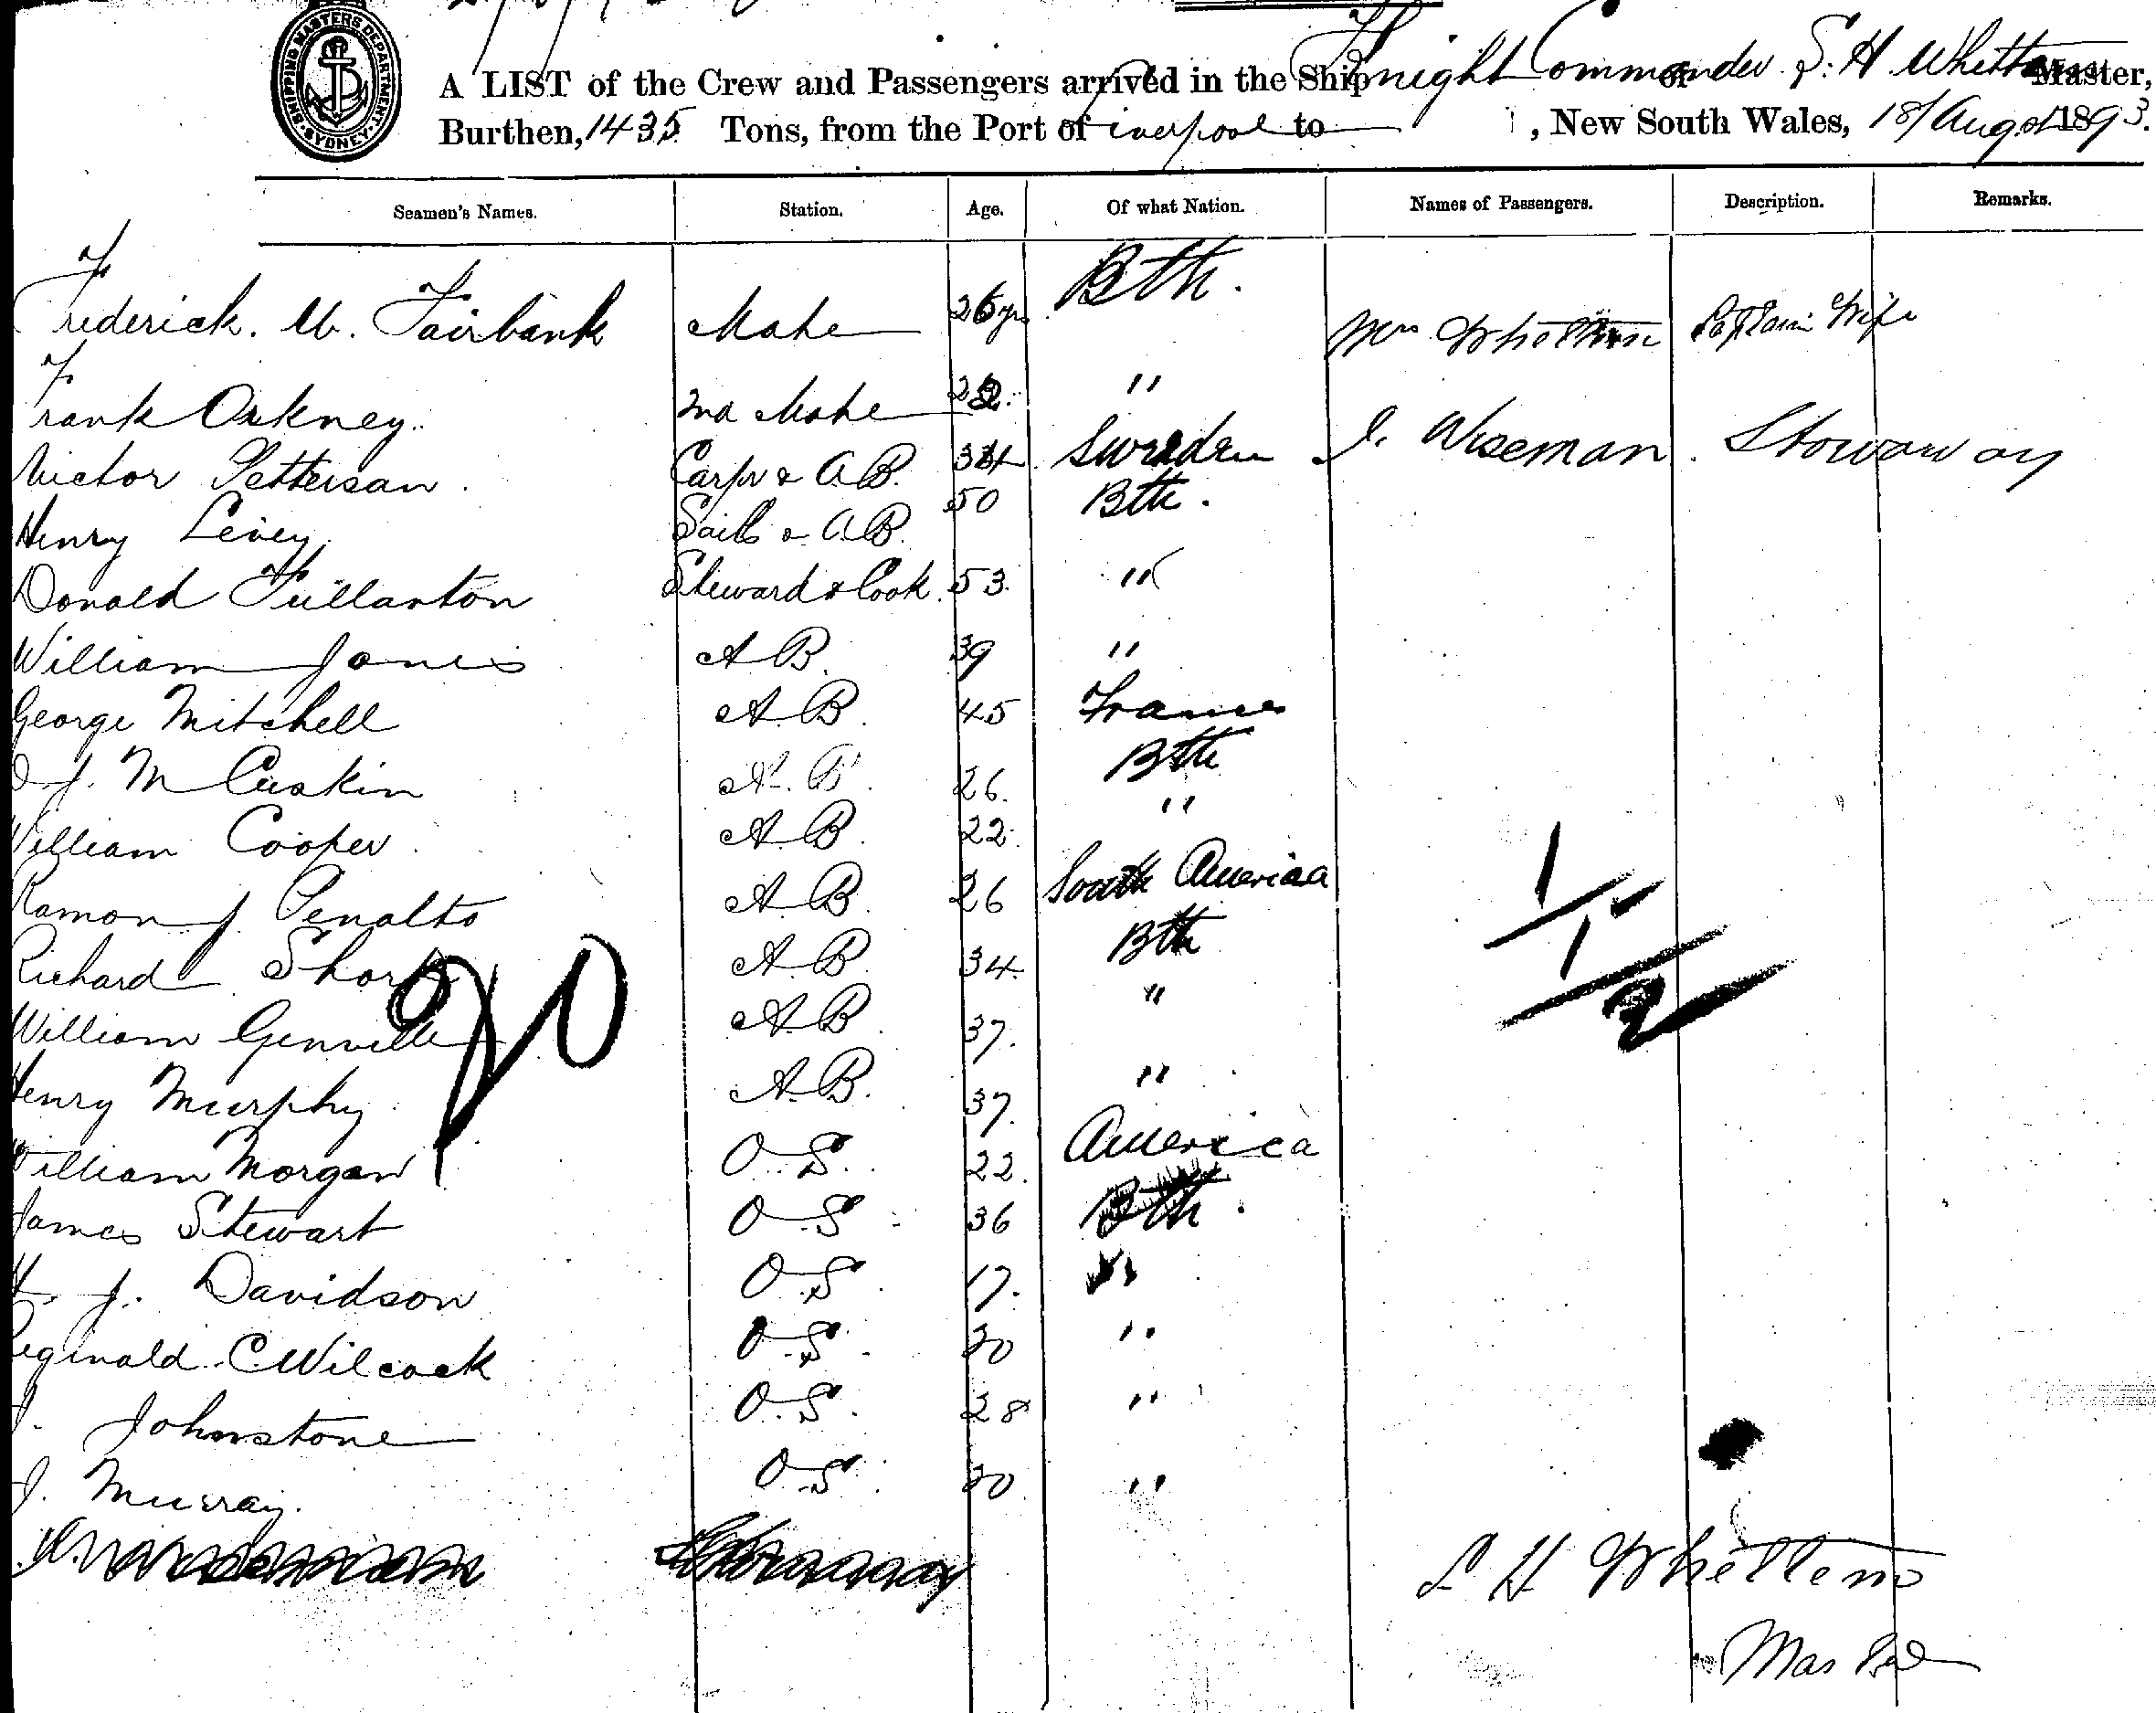 SHIPPING MASTERS DEPARTMENT SYDNEY
A LIST of the Crew and Passengers arrived in the Ship Knight Commander of S. H. Whettem Master,
Burthen, 1435 Tons, from the Port of Liverpool to , New South Wales, 18/ August 1893.
Seamen's Names. Station. Age. Of what Nation. Names of Passengers. Description. Remarks.
Frederick. W. Fairbank Mate 26 yrs Bth. Mrs Whettem Captain Wife
Frank Orkney. 2nd Mate "
Victor Petterson. Carpr & A.B. 34 Sweden J. Wiseman. Stowaway
Henry Levey Sails & A.B. 50 Bth.
Donald Fullarton Steward & Cook. 53. "
William Jones A B. 39 "
George Mitchell A. B. 45 France
J. McCaskin A. B. 26. Bth
William Cooper. A. B. 22. "
Ramon J. Penalto A. B. 26 South America
Richard Short A. B. 34. Bth
William Genville A. B. 37. "
Henry Murphy. A. B. 37. "
William Morgan O. S. 22. America
James Stewart O. S. 36 Bth.
J. Davidson O. S. 17. "
Reginald. C. Wilcock O. S. 20 "
J. Johnstone O. S. 28 "
J. Murray. O. S. 20 "
20
1
1
2
S H Whettem
Master